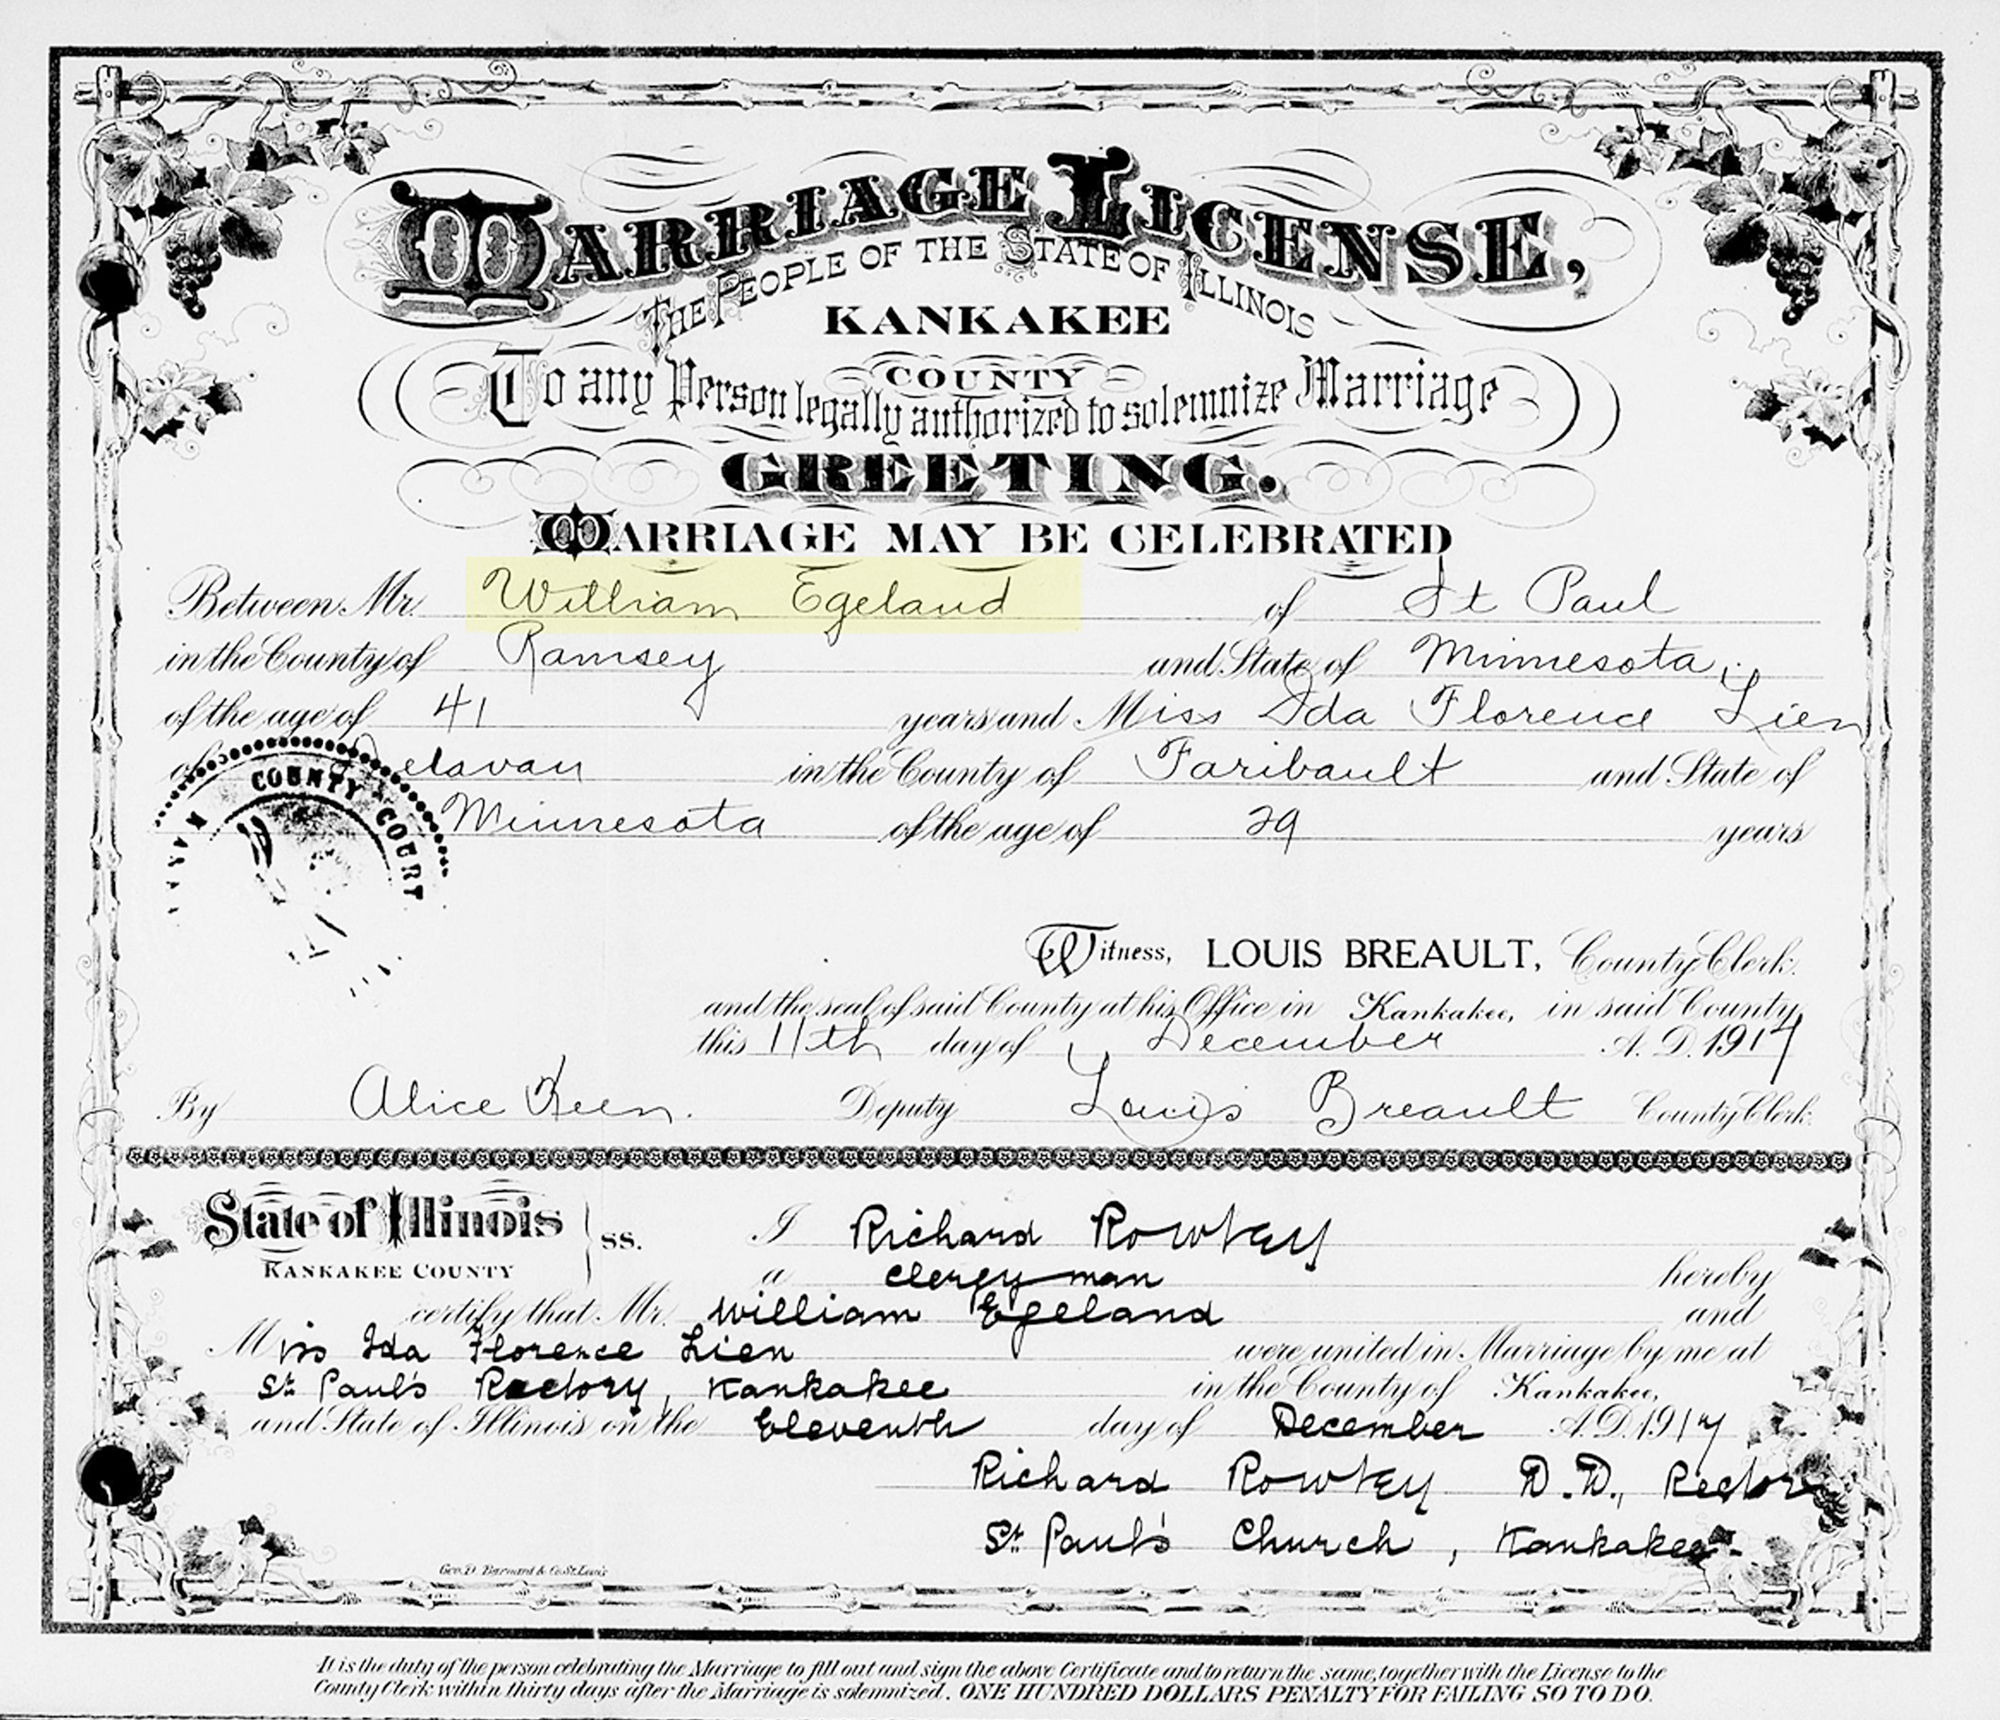 MARRIAGE LICENSE,
THE PEOPLE OF THE STATE OF ILLINOIS
KANKAKEE
COUNTY
To any Person legally authorized to solemnize Marriage
GREETING.
MARRIAGE MAY BE CELEBRATED
Between Mr. William Egeland of St Paul
in the County of Ramsey and State of Minnesota,
of the age of 41 years and Miss Ida Florence Lien
of Delavan in the County of Faribault and State of
Minnesota of the age of 29 years
COUNTY COURT
Witness, LOUIS BREAULT, County Clerk.
and the seal of said County at his Office in Kankakee, in said County
this 11th day of December A. D. 1917
By Alice Keen. Deputy Louis Breault County Clerk.
State of Illinois } ss. I Richard Rowley
KANKAKEE COUNTY a Clergyman hereby
certify that Mr. William Egeland and
Miss Ida Florence Lien were united in Marriage by me at
St Paul's Rectory, Kankakee in the County of Kankakee,
and State of Illinois on the Eleventh day of December A.D. 1917
Richard Rowley D.D., Rector
St Paul's Church, Kankakee-
Geo. D. Barnard & Co. St. Louis
It is the duty of the person celebrating the Marriage to fill out and sign the above Certificate and to return the same, together with the License to the
County Clerk within thirty days after the Marriage is solemnized. ONE HUNDRED DOLLARS PENALTY FOR FAILING SO TO DO.